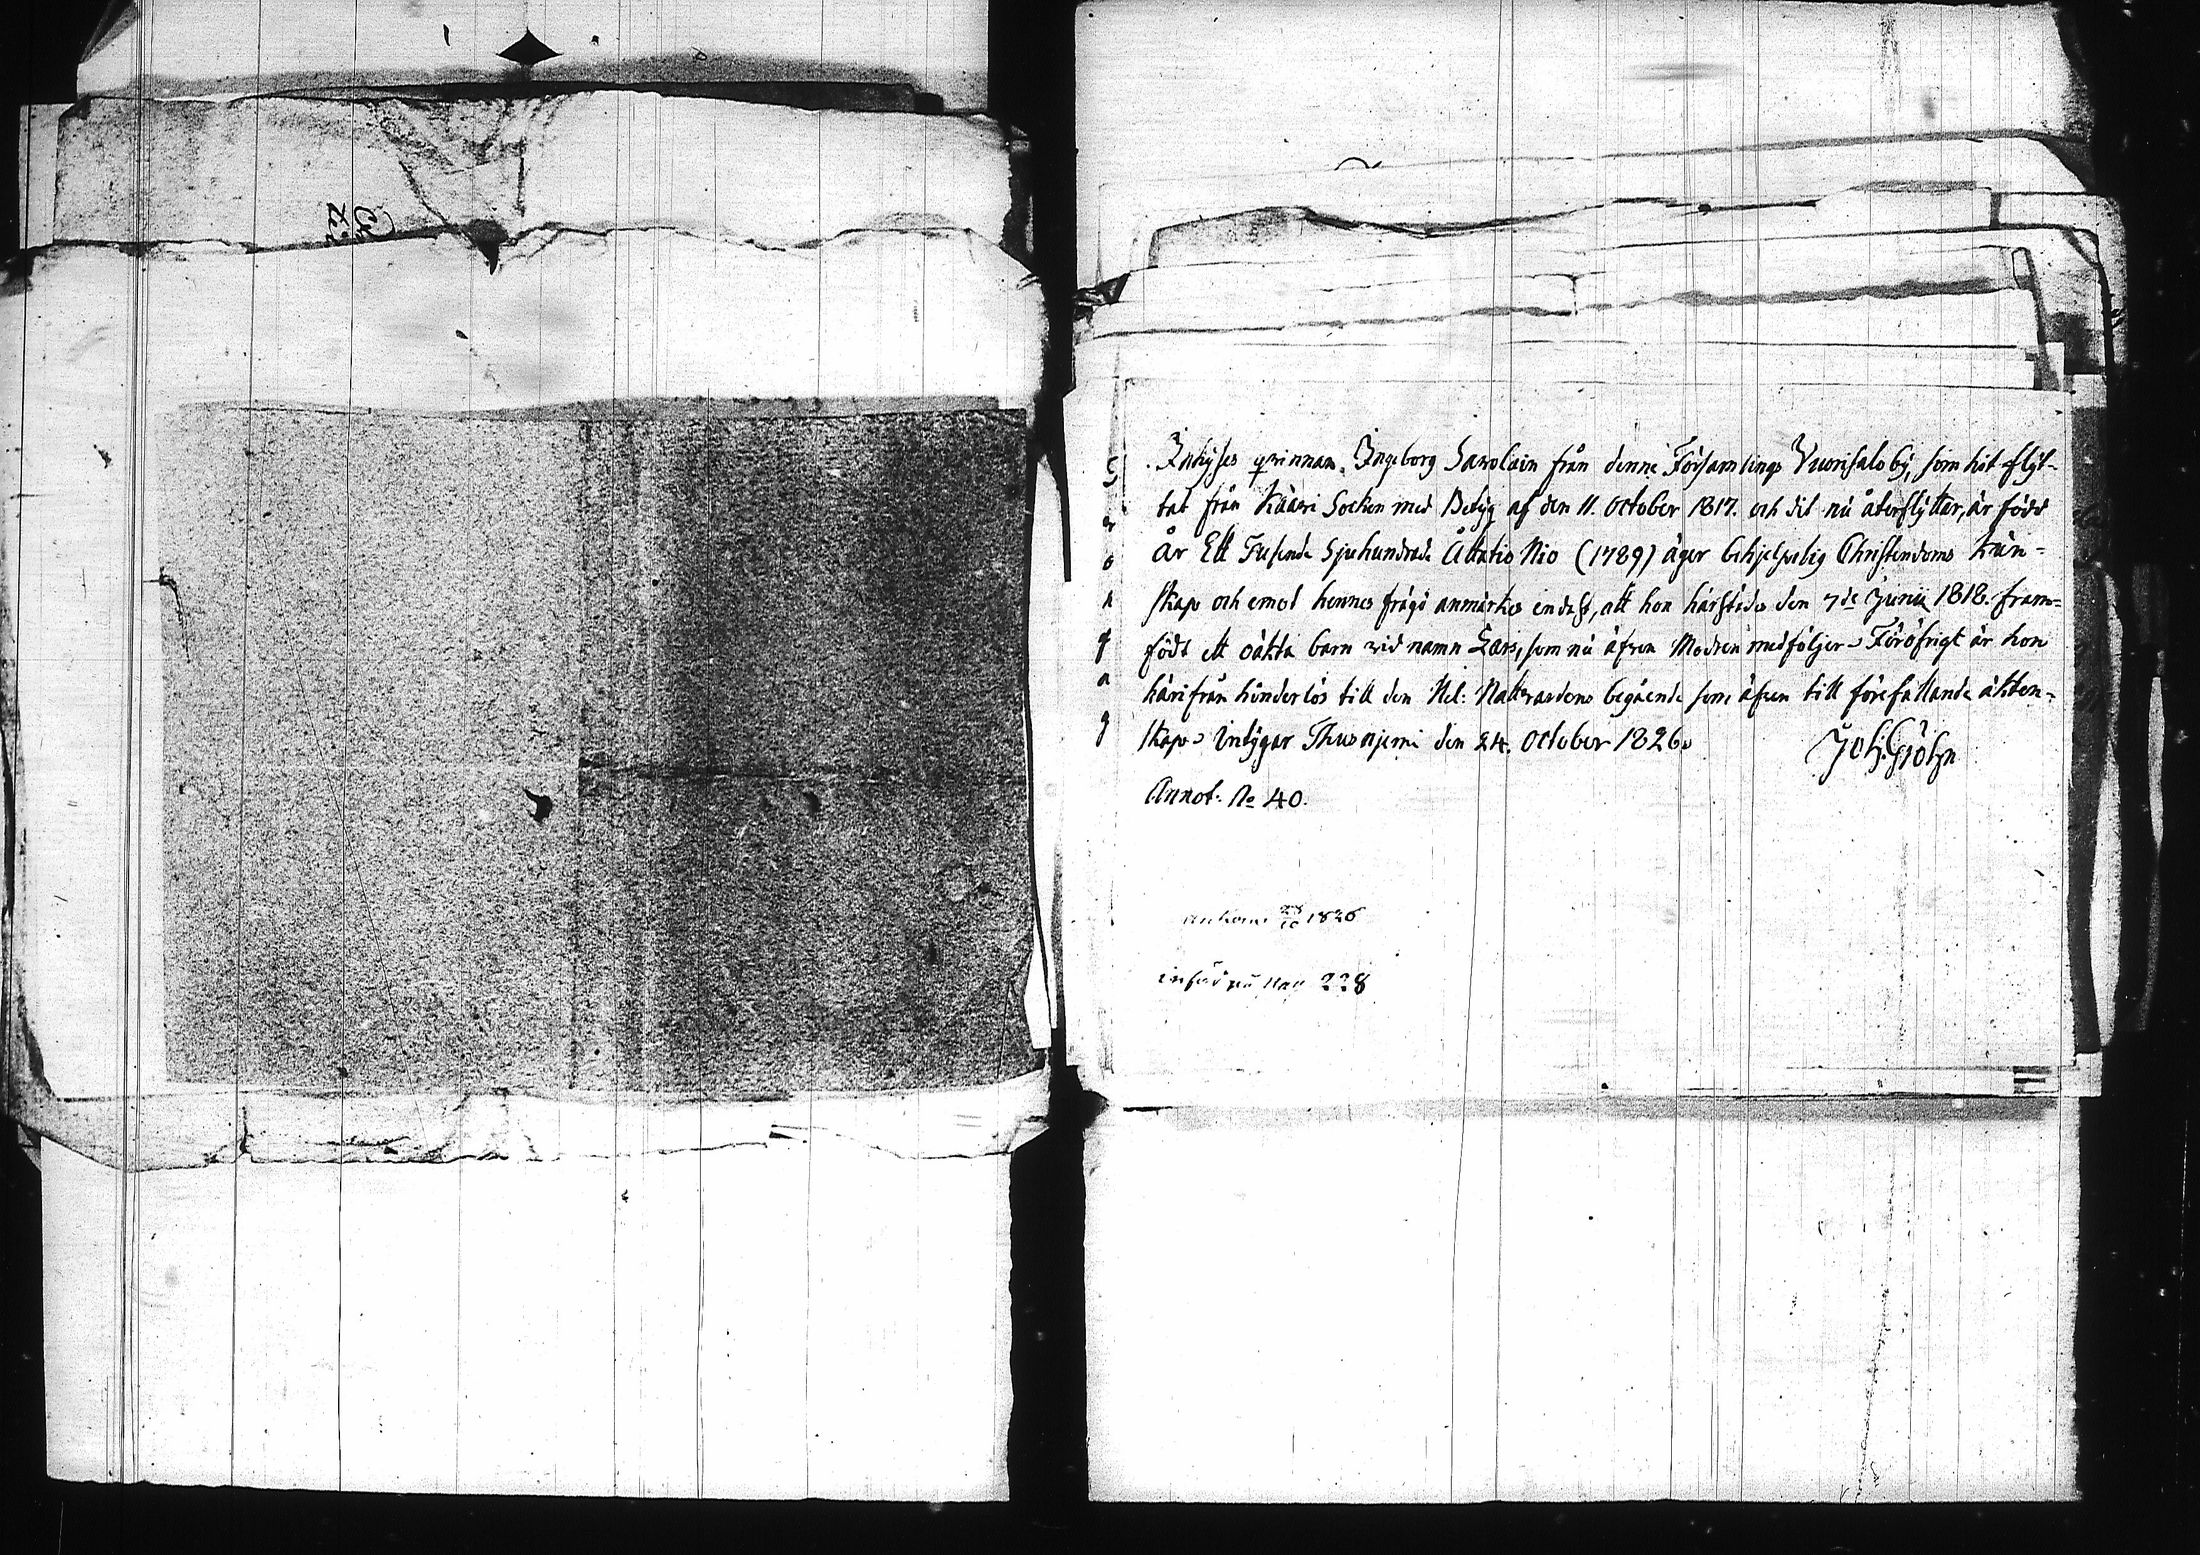 Inhyses qvinnan Ingeborg Savolain från denne Församlings Vuorisalo by, som hit flyt-
tat från Kaavi Socken med Betyg af den 11. October 1817. och dit nu återflyttar, är född
År Ett Tusende Sjuhundrade Åttatio Nio (1789) äger behjelpelig Christendoms kän-
skap och emot hennes frägd anmärkes endast, att hon härstädes den 7de Junii 1818. fram-
födt ett oäkta barn vid namn Lars, som nu äfven Modren medföljer. Föröfrigt är hon
härifrån hinderlös till den Hel. Nattvardens begående som äfven till förefallande äkten-
skap. Intygar Thusnjemi den 24. October 1826.
Joh:
Annot. No 40.
Ankom 28/10 1826
införd på 228